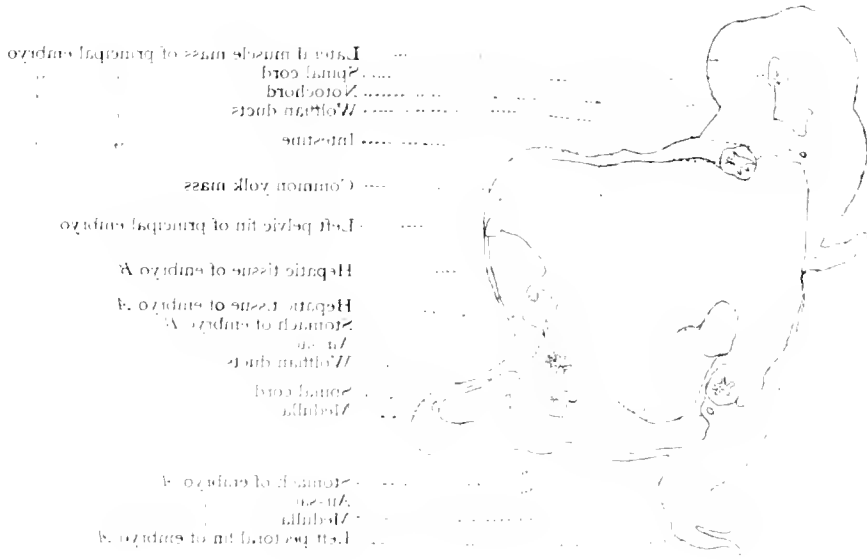 Lateral muscle mass of principal embryo
Spinal cord " "
Notochord " "
Wolffian ducts "
Intestine " "
Common yolk mass
Left pelvic fin of principal embryo
Hepatic tissue of embryo B
Hepatic tissue of embryo A
Stomach of embryo B
Wolffian ducts
Spinal cord
Medulla
Stomach of embryo A
Medulla
Left pectoral fin of embryo A